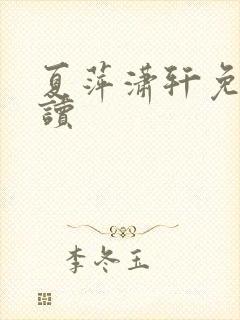 夏萍潇轩免
讀
李冬玉